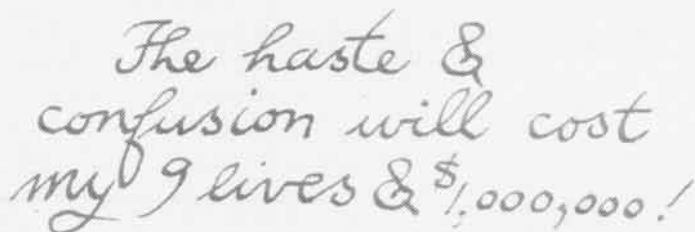 The haste &
confusion will cost
my 9 lives & $1,000,000!